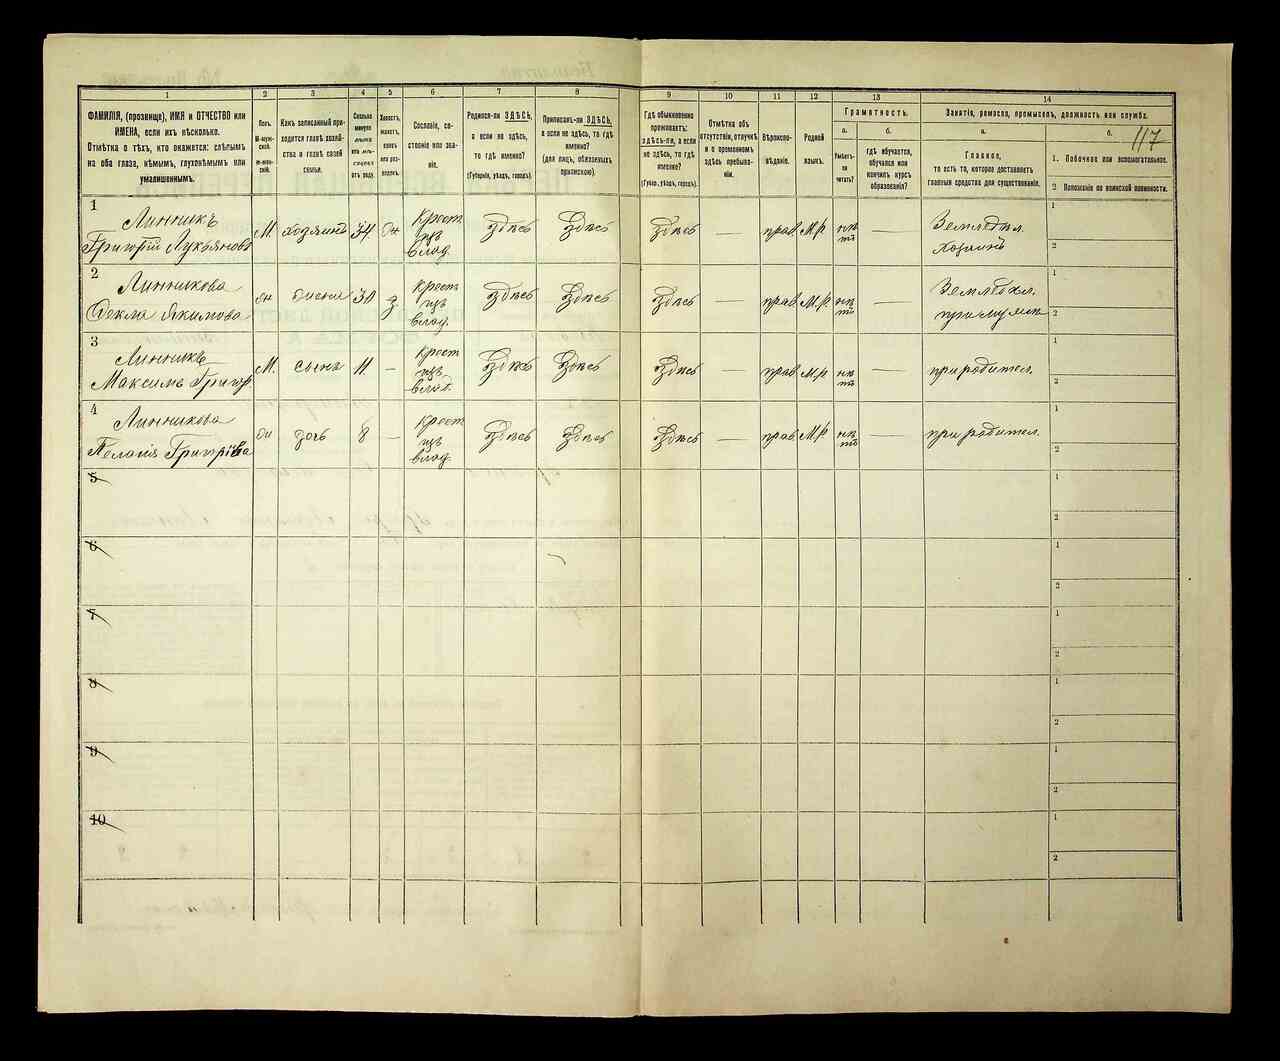 117
1
2
3
4
5
6
7
8
9
10
11
12
13
14
ФАМИЛІЯ, (прозвище), ИМЯ и ОТЧЕСТВО или
ИМЕНА, если ихъ нѣсколько.
Отмѣтка о тѣхъ, кто окажется: слѣпымъ
на оба глаза, нѣмымъ, глухонѣмымъ или
умалишеннымъ.
Полъ.
М-муж-
ской.
Ж-жен-
скій.
Какъ записанный при-
ходится главѣ хозяй-
ства и главѣ своей
семьи.
Сколько
минуло
лѣтъ
или мѣ-
сяцевъ
отъ роду.
Холостъ,
женатъ,
вдовъ
или раз-
веденъ.
Сословіе, со-
стояніе или зва-
ніе.
Родился-ли ЗДѢСЬ,
а если не здѣсь,
то гдѣ именно?
(Губернія, уѣздъ, городъ).
Приписанъ-ли ЗДѢСЬ,
а если не здѣсь, то гдѣ
именно?
(для лицъ, обязанныхъ
припискою).
Гдѣ обыкновенно
проживаетъ:
здѣсь-ли, а если
не здѣсь, то гдѣ
именно?
(Губер., уѣздъ, городъ).
Отмѣтка объ
отсутствіи, отлучкѣ
и о временномъ
здѣсь пребыва-
ніи.
Вѣроиспо-
вѣданіе.
Родной
языкъ.
Грамотность.
а.
Умѣетъ-
ли
читать?
б.
гдѣ обучается,
обучался или
кончилъ курсъ
образованія?
Занятіе, ремесло, промыселъ, должность или служба.
а.
Главное,
то есть то, которое доставляетъ
главныя средства для существованія.
б.
1. Побочное или вспомогательное.
2 Положеніе по воинской повинности.
1
Линникъ
Григорій Лукьяновъ
М.
хозяинъ
34
Крест
изъ
влад.
здѣсь
здѣсь
здѣсь
—
прав
М.р.
—
Земледѣл.
хозяинъ
1
2
2
Линникова
Фекла Якимова
30
Крест
изъ
влад.
здѣсь
здѣсь
здѣсь
—
прав
М.р.
—
при мужѣ
1
2
3
Линникъ
Максимъ Григор
М.
сынъ
11
—
Крест
изъ
влад.
здѣсь
здѣсь
здѣсь
—
прав
М.р.
—
при родител.
1
2
4
Линникова
дочь
8
—
Крест
изъ
влад.
здѣсь
здѣсь
здѣсь
—
прав
М.р.
—
при родител.
1
2
5
1
2
6
1
2
7
1
2
8
1
2
9
1
2
10
1
2